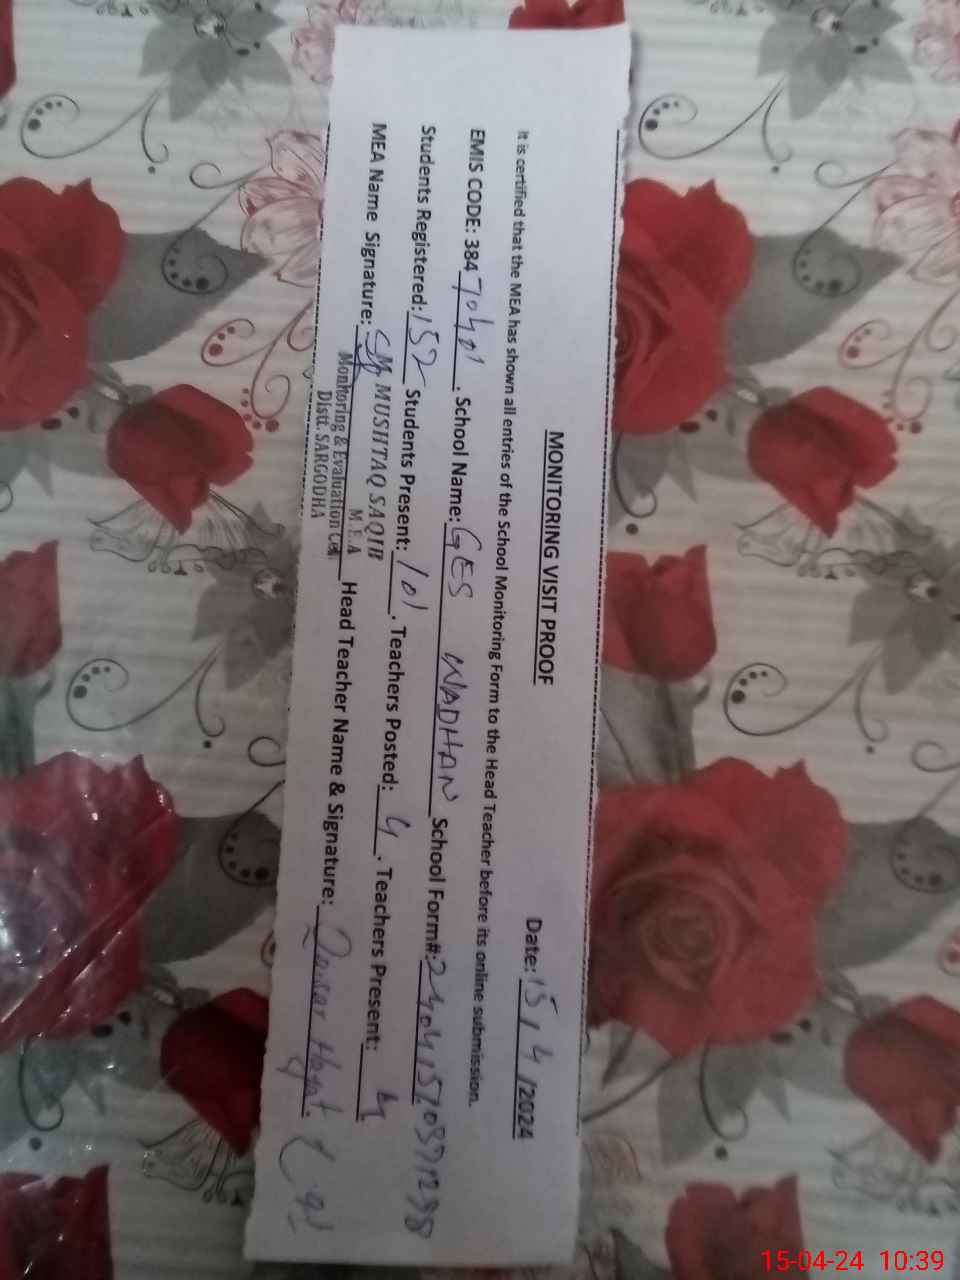 MONITORING VISIT PROOF
Date: 15/4/2024
It is certified that the MEA has shown all entries of the School Monitoring Form to the Head Teacher before its online submission.
EMIS CODE: 38470401. School Name: GES WADHAN School Form#:
Students Registered: 152 Students Present: 101. Teachers Posted: 4. Teachers Present: 4.
MEA Name Signature: MUSHTAQ SAQIB Head Teacher Name & Signature:
M.E.A
Monitoring & Evaluation Cell
Distt. SARGODHA
15-04-24 10:39